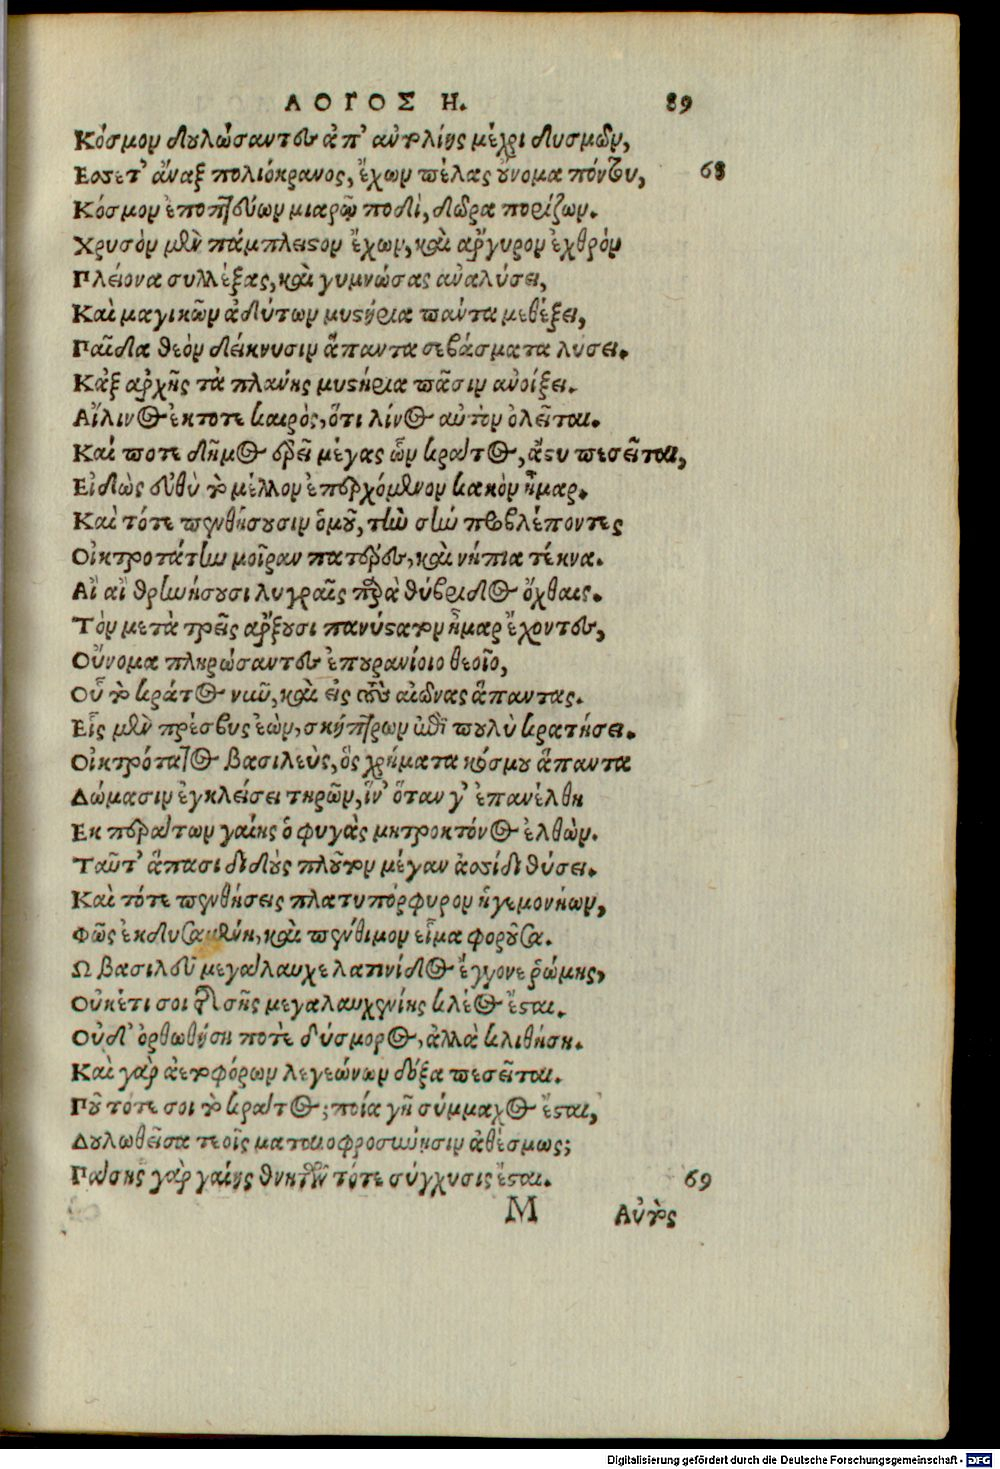 ΛΟΓΟΣ Η. 89
Κόσμον δουλώσαντες ἀπ' αὐτολίης μέχρι δυσμῶν,
Εσσετ' ἄναξ πολιόκρανος, ἔχων πέλας οὔνομα πόντου, 68
Κόσμον ἐποπτεύων μιαρῷ ποδὶ, δῶρα πορίζων.
Χρυσὸν μὲν πάμπλειστον ἔχων, καὶ ἄργυρον ἐχθρὸν
Πλείονα συλλέξας, καὶ γυμνώσας ἀναλύσει,
Καὶ μαγικῶν ἀδύτων μυστήρια πάντα μεθέξει,
Παῖδα θεὸν δείκνυσιν ἅπαντα σεβάσματα λύσει.
Κἀξ ἀρχῆς τὰ πλάνης μυστήρια πᾶσιν ἀνοίξει.
Αἴλινος ἔκτοτε καιρὸς, ὅτι λίνος αὐτὸν ὀλεῖται.
Καί ποτε δῆμος ἐρεῖ μέγας ὢν κράτος, ἄστυ πεσεῖται,
Εἰδὼς εὐθὺ τὸ μέλλον ἐπερχόμενον κακὸν ἦμαρ.
Καὶ τότε πενθήσουσιν ὁμοῦ, τὴν σὴν προβλέποντες
Οἰκτροτάτην μοῖραν πατέρες, καὶ νήπια τέκνα.
Αἲ αἲ θρηνήσουσι λυγραῖς παρὰ θύβριδος ὄχθαις.
Τὸν μετὰ τρεῖς ἄρξουσι πανύστατον ἦμαρ ἔχοντες,
Οὔνομα πληρώσαντες ἐπουρανίοιο θεοῖο,
Οὗ τὸ κράτος νῦν, καὶ εἰς τοὺς αἰῶνας ἅπαντας.
Εἷς μὲν πρέσβυς ἐὼν, σκήπτρων ἐπὶ πουλὺ κρατήσει.
Οἰκτρότατος βασιλεὺς, ὃς χρήματα κόσμου ἅπαντα
Δώμασιν ἐγκλείσει τηρῶν, ἵν' ὅταν γ' ἐπανέλθη
Εκ περάτων γαίης ὁ φυγὰς μητροκτόνος ἐλθὼν.
Ταῦτ' ἅπασι διδοὺς πλοῦτον μέγαν ἀσσίδι θύσει.
Καὶ τότε πενθήσεις πλατυπόρφυρον ἡγεμονήων,
Φῶς ἐκδυσαμένη, καὶ πένθιμον εἷμα φοροῦσα.
Ω βασιλεῦ μεγάλαυχε λατινίδος ἔγγονε ῥώμης,
Οὐκέτι σοι τῆς σῆς μεγαλαυχενίης κλέος ἔσται.
Οὐδ' ὀρθωθήση ποτὲ δύσμορος, ἀλλὰ κλιθήση.
Καὶ γὰρ ἀετοφόρων λεγεώνων δόξα πεσεῖται.
Ποῦ τότε σοι τὸ κράτος; ποία γῆ σύμμαχος ἔσται,
Δουλωθεῖσα τεοῖς ματαιοφροσύνησιν ἀθέσμως;
Πάσης γὰρ γαίης θνητῶν τότε σύγχυσις ἔσται. 69
M Αὐτὸς
Digitalisierung gefördert durch die Deutsche Forschungsgemeinschaft - DFG